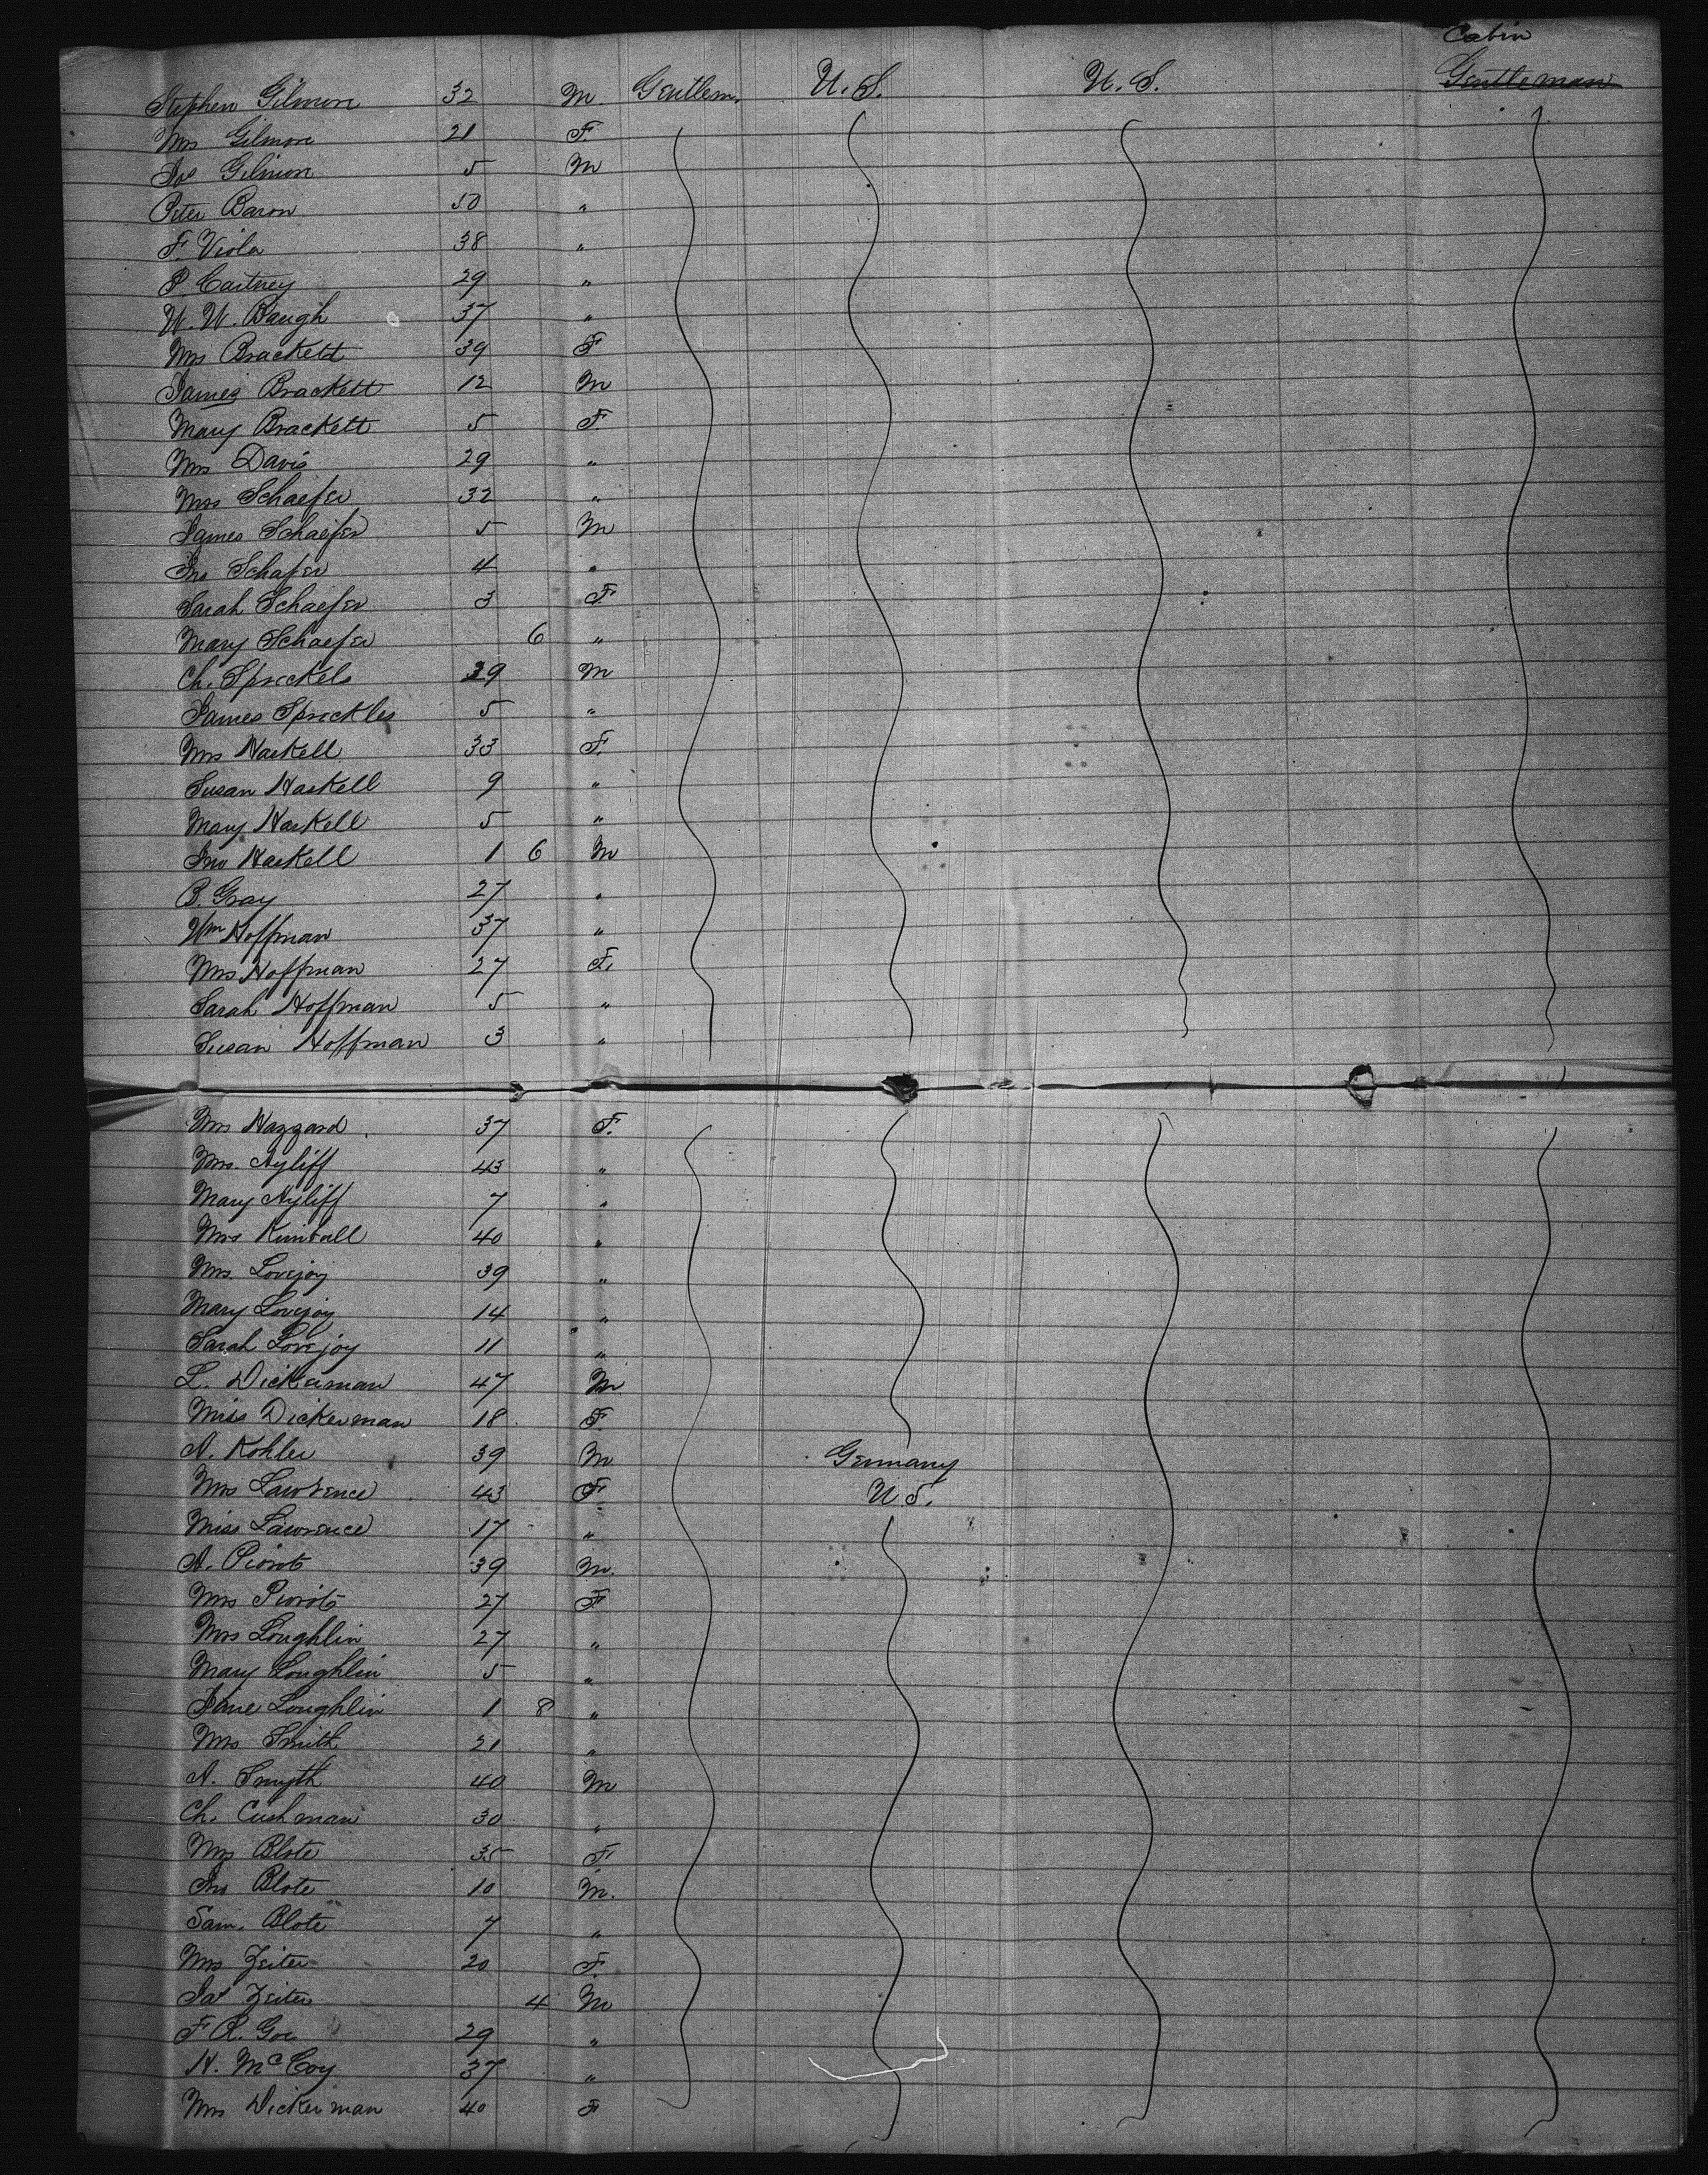 Cabin
Stephen Gilmore 32 M. Gentlem. U.S. U.S. Gentleman
Mrs Gilmore 21 F.
Jos Gilmore 5 M
Peter Baron 50 "
F. Viola 38 "
P. Cartney 29 "
W. W. Baugh 37 "
Mrs Brackett 39 F
James Brackett 12 M
Mary Brackett 5 F.
Mrs Davis 29 "
Mrs Schaefer 32 "
James Schaefer 5 M
Jno Schafer 4 "
Sarah Schaefer 3 F.
Mary Schaefer 6 "
Ch. Spreckels 39 M
James Spreckles 5 "
Mrs Haskell 33 F.
Susan Haskell 9 "
Mary Haskell 5 "
Jno Haskell 1 6 M
B. Gray 27 "
Wm Hoffman 37 "
Mrs Hoffman 27 F.
Sarah Hoffman 5 "
Susan Hoffman 3 "
Mrs Hazzard 37 F.
Mrs. Ayliff 43 "
Mary Ayliff 7 "
Mrs Kimball 40 "
Mrs. Lovejoy 39 "
Mary Lovejoy 14 "
Sarah Lovejoy 11 "
L. Dickerman 47 M
Miss Dickerman 18 F.
A. Kohler 39 M Germany
Mrs Lawrence 43 F U.S.
Miss Lawrence 17 "
A. 39 M.
Mrs 27 F
Mrs Loughlin 27 "
Mary Loughlin 5 "
Jane Loughlin 1 8 "
Mrs Smith 21 "
A. Smyth 40 M
Ch. Cushman 30 "
Mrs Blote 35 F
Jno Blote 10 M.
Sam. Blote 7 "
Mrs Zeiter 20 F.
Jas Zeiter 4 M
F R. Goe 29 "
H. McCoy 37 "
Mrs Dickerman 40 F